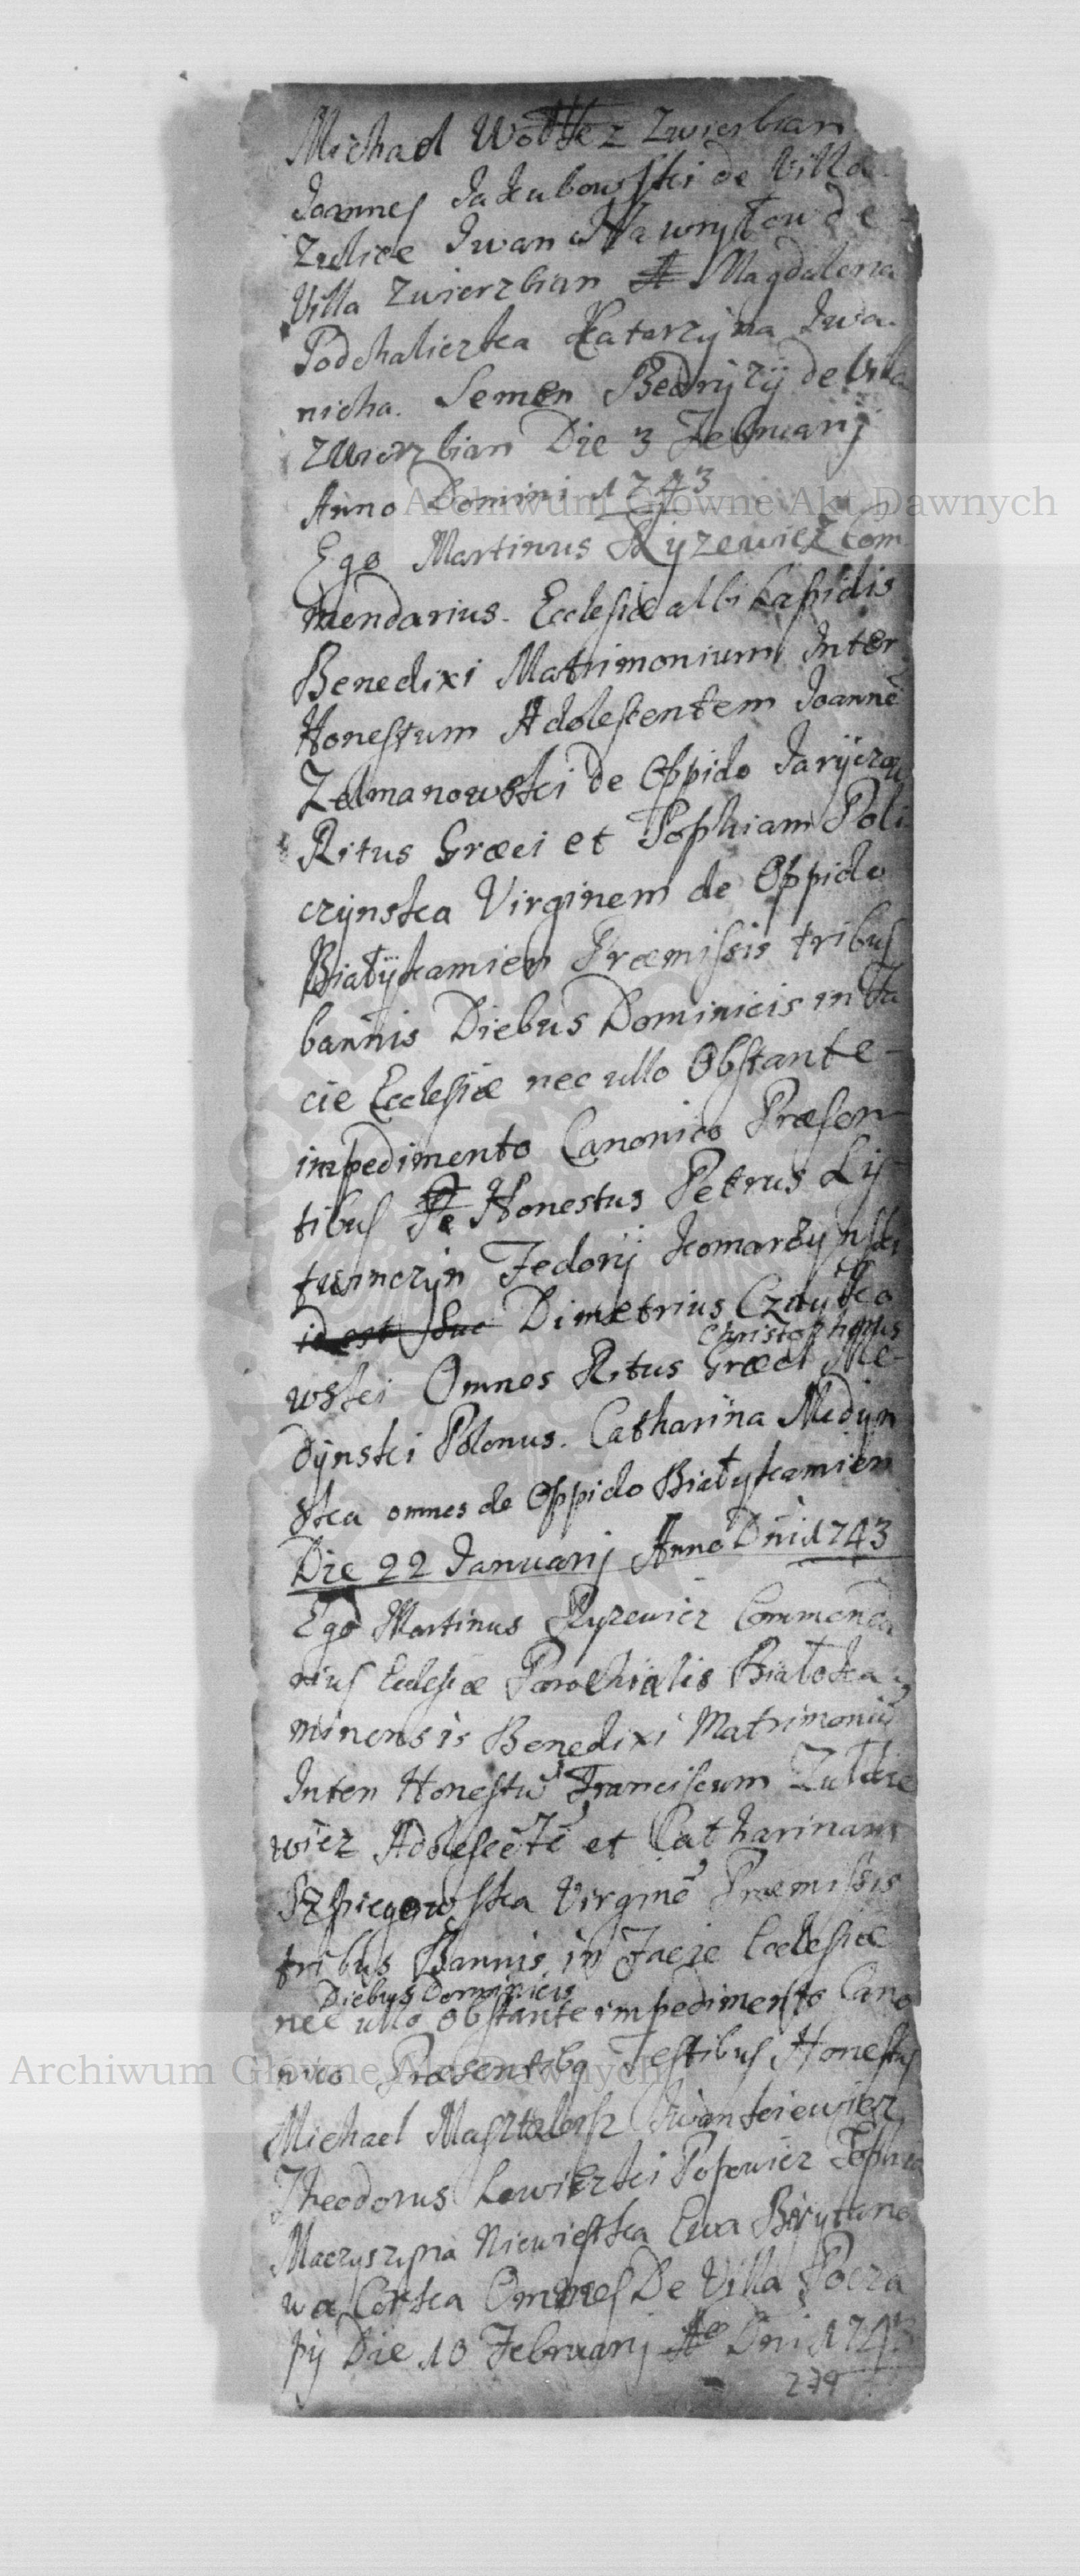 Michael Wołk z Zwierbian
Joannes Jakubowski de Villa
Zulice Iwan Hawryłow de
Villa Zwierzbian Magdalena
Podchaliczka Katarzyna Iwa-
nicha. Semen Bedryzÿ de Villa
Zwierzbian Die 3 Februarij
Anno Domini 1743
Ego Martinus Ryzewicz Com
mendarius. Ecclesiæ albi Lapidis
Benedixi Matrimonium Inter
Honestum Adolescentem Joannē
Zelmanowski de Oppido Jaryczow
Ritus Græci et Sophiam Poli
czÿnska Virginem de Oppido
Białÿkamien Præmissis tribus
bannis Diebus Dominicis in Fa
cie Ecclesiæ nec ullo Obstante
impedimento Canonico Præsen
tibus Honestus Petrus Lis
Fedorij Komarzynski
id est Dimetrius Czayko
Christophorus
wski Omnes Ritus Græci Me
dÿnski Polonus. Catharina Medyn
ska omnes de Oppido Białykamien
Die 22 Januarij Anno Dni 1743
Ego Martinus Ryzewicz Commenda
rius Ecclesiæ Parochialis Białoka
minensis Benedixi Matrimoniū
Inter Honestū Franciscum Zułkie
wicz Adolescētē et Catharinam
Szpiegowska Virginē Præmissis
tribus Bannis in Facie Ecclesiæ
Diebus Dominicis
nec ullo obstante impedimento Cano
nico Præsentibq Testibus Honestus
Michael Masztalerz Iwankiewicz
Theodorus Lewicki Popowicz Sophia
Niewiastka Ewa
wa Corka Omnes De Villa Pocza
pÿ Die 10 Februarij Ao Dni 1743
279
Archiwum Główne Akt Dawnych
Archiwum Główne Akt Dawnych